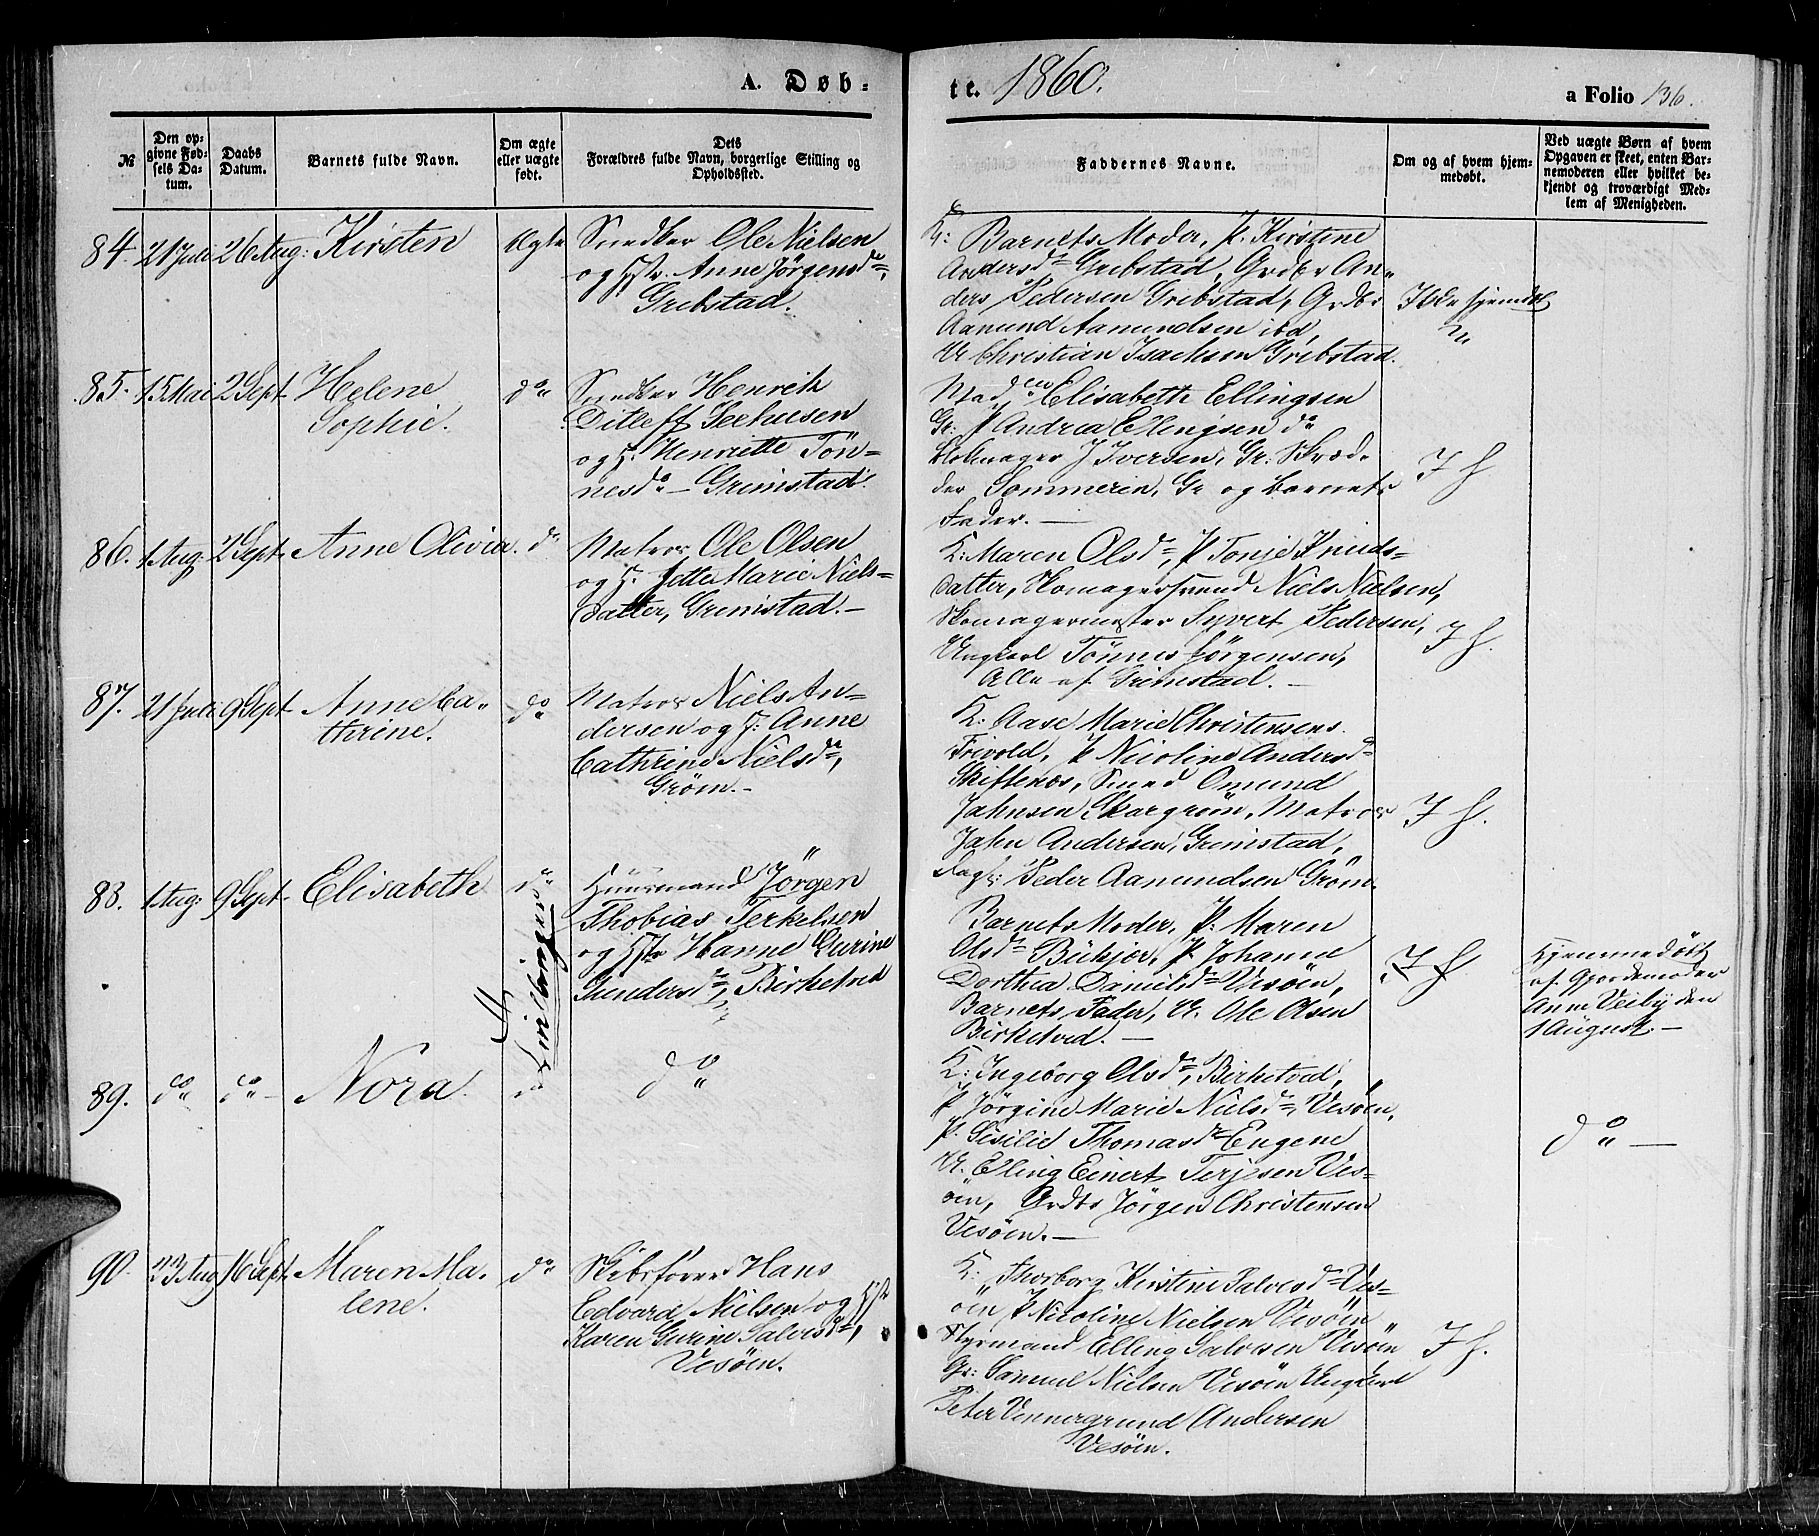 A. Døb-
te. 1860.
a Folio 136.
№
Den op-
givne Fød-
sels Da-
tum.
Daabs
Datum.
Barnets fulde Navn.
Om ægte
eller uægte
født.
Dets
Forældres fulde Navn, borgerlige Stilling og
Opholdssted.
Faddernes Navne.
Om og af hvem hjem-
medøbt.
Ved uægte Børn af hvem
Opgaven er skeet, enten Bar-
nemoderen eller hvilket be-
kjendt og troværdigt Med-
lem af Menigheden.
84. 21 Juli 26 Aug: Kirsten
Ægte
Snedker Ole Nielsen
og Hstr. Anne Jörgensd.
Grebstad.
K: Barnets Moder, P. Kirstine
Andersd. Grebstad, Grdbr An-
ders Pedersen Grebstad, Grdbr
Aamund Aamundsen ibd,
U Christian Isachsen Grebstad.
Ikke hjemdøbt
85. 15 Mai 2 Sept Helene
Sophie.
do
Snedker Henrik
Ditleff Seehusen
og H. Henriette Tön-
nesd. – Grimstad.
Mad Elisabeth Ellingsen
Gr: P Andrea Ellingsen do
Skomager J Iversen, Gr: Skræd-
der Sommerin, Gr og Barnets
Fader. –
I H
86. 1 Aug: 2 Sept. Anne Olivia. do
Matros Ole Olsen
og H. Jette Marie Niels-
datter, Grimstad. –
K: Maren Olsd, P Tonje Knuds-
datter, Skomagersvend Niels Nielsen,
Skomagermester Syvert Pedersen,
Ungkarl Tönnes Jörgensen,
Alle af Grimstad. –
I H.
87. 21 Juli 9 Sept Anne Ca-
thrine.
do
Matros Niels An-
dersen og H: Anne
Cathrine Nielsd,
Gröm. –
K: Aase Marie Christensens
Frivold, P Nicoline Andersd
Skiftenes, Smed Omund
Jahnsen Skargröm, Matros
Jahn Andersen, Grimstad,
Peder Aamundsen Gröm.
I H.
88. 1 Aug: 9 Sept. Elisabeth
do
Tvillinger
Huusmand Jörgen
Thobias Terkelsen
og Hstr Hanne Gurine
Gundersd, Birketved
Barnets Moder, P. Maren
Olsd Bükjær, P Johanne
Dorthea Danielsd Vesöen,
Barnets Fader, U. Ole Olsen
Birketved. –
I H
Hjemmedöbt
af Gjordemoder
Anne Veiby den
1 August. –
89. do do – Nora.
do
do
K: Ingeborg Olsd, Birketved,
P Jörgine Marie Nielsd, Vesöen,
P. Sesilie Thomasd Eugene
U. Elling Einert Terjesen Ves-
öen, Grdbr Jörgen Christensen
Vesöen. –
do –
90. 23 Aug 16 Sept. Maren Ma-
lene.
do
Skibsförer Hans
Edvard Nielsen og Hstr
Karen Gurine Salvesd,
Vesöen.
K: Thorborg Kirstine Salvesd Ves-
öen P Nicoline Nielsen Vesöen
Styrmand Elling Salvesen Vesöen
Gr: Samuel Nielsen Vesöen Ungkarl
Peter Vennergrund Andersen
Vesöen.
I H.